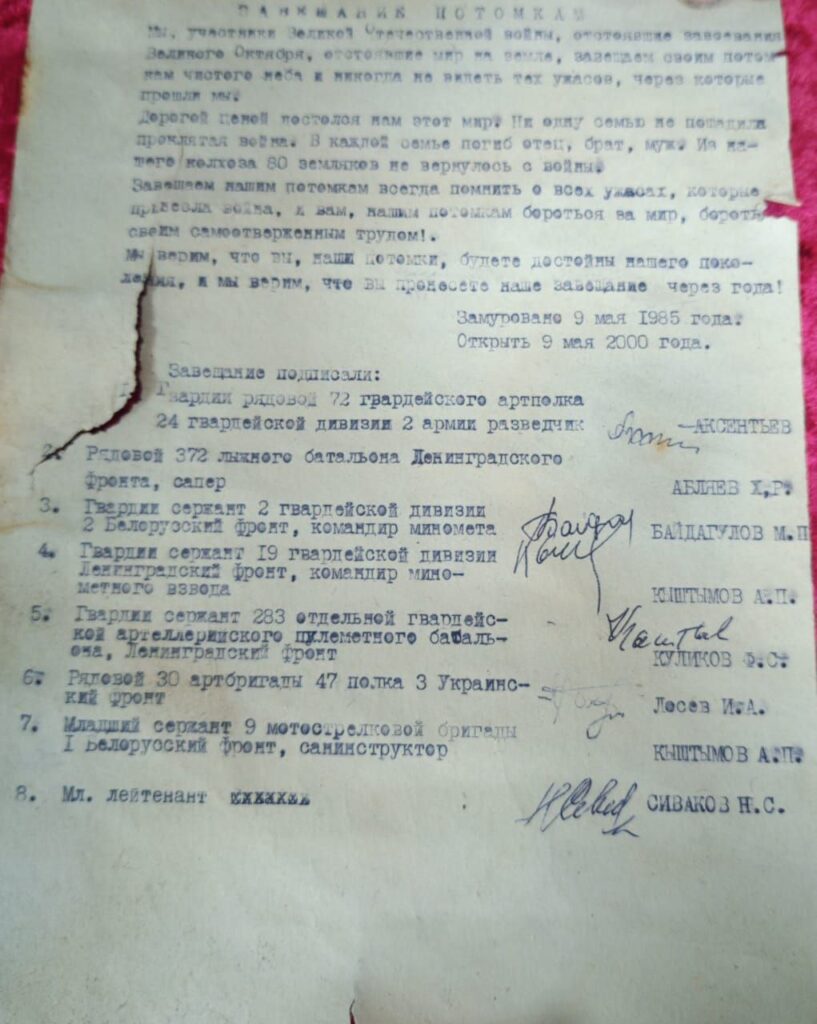 ЗАВЕЩАНИЕ ПОТОМКАМ
Мы, участники Великой Отечественной войны, отстоявшие завоевания
Великого Октября, отстоявшие мир на земле, завещаем своим потом
кам чистого неба и никогда не видеть тех ужасов, через которые
прошли мы.
Дорогой ценой достался нам этот мир. Ни одну семью не пощадила
проклятая война. В каждой семье погиб отец, брат, муж. Из на-
шего колхоза 80 земляков не вернулось с войны.
Завещаем нашим потомкам всегда помнить о всех ужасах, которые
принесла война, и вам, нашим потомкам бороться за мир, бороть
своим самоотверженным трудом!.
Мы верим, что вы, наши потомки, будете достойны нашего поко-
ления, и мы верим, что вы пронесете наше завещание через года!
Замуровано 9 мая 1985 года.
Открыть 9 мая 2000 года.
Завещание подписали:
1. Гвардии рядовой 72 гвардейского артполка
24 гвардейской дивизии 2 армии разведчик АКСЕНТЬЕВ
2. Рядовой 372 лыжного батальона Ленинградского
фронта, сапер АБЛЯЕВ Х.Р.
3. Гвардии сержант 2 гвардейской дивизии
2 Белорусский фронт, командир миномета БАЙДАГУЛОВ М.П
4. Гвардии сержант 19 гвардейской дивизии
Ленинградский фронт, командир мино-
метного взвода КЫШТЫМОВ А.П.
5. Гвардии сержант 283 отдельной гвардейс-
кой артеллерийского пулеметного баталь-
она, Ленинградский фронт КУЛИКОВ Ф.С.
6. Рядовой 30 артбригады 47 полка 3 Украинс-
кий фронт Лосев И.А.
7. Младший сержант 9 мотострелковой бригады
I Белорусский фронт, санинструктор КЫШТЫМОВ А.П.
8. Мл. лейтенант СИВАКОВ Н.С.